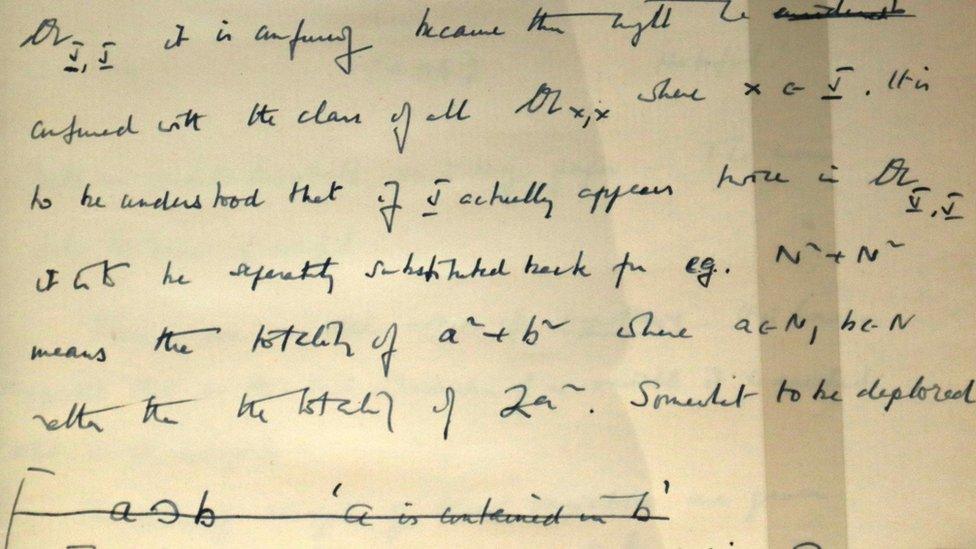 𝔄 V, V it is confusing because this might be
confused with the class of all 𝔄 x,x where x ∈ V. It is
to be understood that if V actually appears twice in 𝔄 V, V
it is to be separately substituted back for eg. N² + N²
means the totality of a² + b² where a ∈ N, b ∈ N
rather than the totality of 2a². Somewhat to be deplored
a ⊃ b 'a is contained in b'